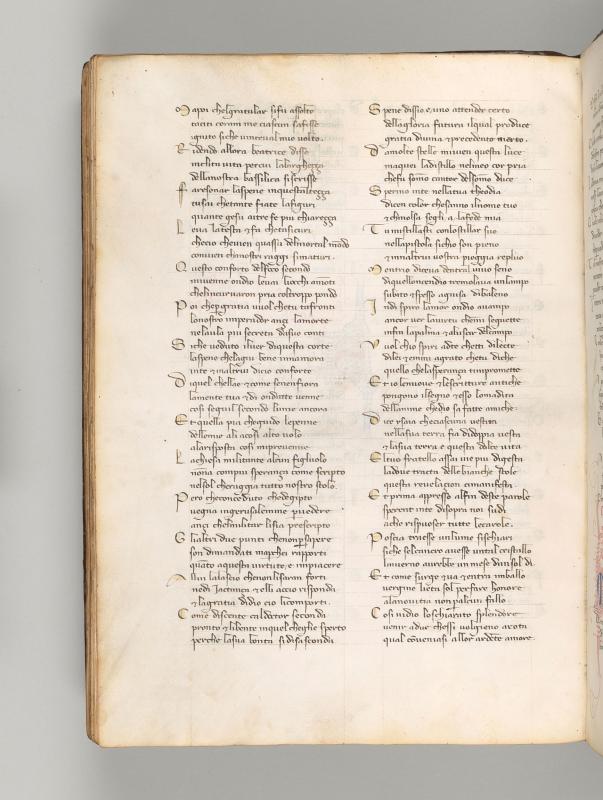 Mapoi chelgratular sifu assolto
tacito coram me ciascun safisse
ignito siche vinceval mio volto
Ridendo allora beatrice disse
inclita vita percui lalarghezza
dellanostra basilica siscrisse
Farsonar laspene inquestaltezza
tusai chetante fiate lafiguri
quante gesu aitre fe piu chiarezza
Leva latesta & fa chetassicuri
checio cheuien quassu delmortal mōdo
conuien chanostri raggi simaturi
Questo conforto delfoco secondo
miuenne ondio leuai liocchi amonti
chelincuruaron pria coltroppo pondo
Poi chepergratia uuol chetu tafronti
lonostro imperador anzi lamorte
nelaula piu secreta cosuoi conti
Siche ueduto iluer diquesta corte
laspene chelagiu bene innamora
inte & inaltrui dicio conforte
Di quel chellae & come senenfiora
lamente tua & di ondatte uenne
cosi seguil secondo lume ancora
Et quella pia cheguido lepenne
dellemie ali acosi alto uolo
alarisposta cosi mipreuenne
Lachiesa militante alcun figliuolo
nona compiu speranza come scripto
nelsol cheraggia tutto nostro stolo
Pero checonceduto chedegipto
uegna ingerusalemme peruedere
anzi chelmilitar lisia prescripto
Glialtri due punti chenonpersapere
son dimandati maperchei rapporti
quāto aquesta uirtute e impiacere
Allui lalascio chenonlifaran forti
nedi iactanza & elli accio risponda
& lagratia didio cio licomporti
Come discente caldoctor seconda
pronto & libente inquel chegli e sperto
perche lasua bonta sidisasconda
Spene dissio e uno attender certo
dellagloria futura ilqual produce
gratia diuina & precedente merto
Da molte stelle miuien questa luce
maquei ladistillo nelmeo cor pria
chefu sōmo cantor delsōmo duce
Sperino inte nellatua theodia
dicen color chesanno ilnome tuo
& chinolsa segli a lafede mia
Tu mistillasti conlostillar suo
nellapistola sichio son pieno
& inaltrui uostra pioggia repluo
Mentrio diceua dentral uiuo seno
diquelloncendio tremolaua unlampo
subito & spesso aguisa dibaleno
Indi spiro lamor ondio auampo
ancor uer lauirtu chemi seguette
infin lapalma & aluscir delcampo
Vuol chio spiri adte chetti dilecte
dilei & emmi agrato chetu diche
quello chelasperanza timpromette
Et io lenuoue & lescritture antiche
pongono ilsegno & esso lomadita
dellanime chedio sa fatte amiche
Dice ysaia checiascuna uestita
nellasua terra fia didoppia uesta
& lasua terra e questa dolce uita
Eltuo fratello assai uie piu digesta
ladoue tracta delle bianche stole
questa reuelacion cimanifesta
Et prima appresso alfin deste parole
sperent inte disopra noi sudi
acheo rispuoser tutte lecarole
Poscia tra esse unlume sischiari
siche selcancro auesse untal cristallo
lanuerno aurebbe un mese dunsol di
Et come surge & ua & entra imballo
uergine lieta sol perfare honore
alanouitia non palcun fallo
Cosi uidio loschiarato splendore
uenir adue chessi uolgieno arota
qual cōueniasi allor ardēte amore